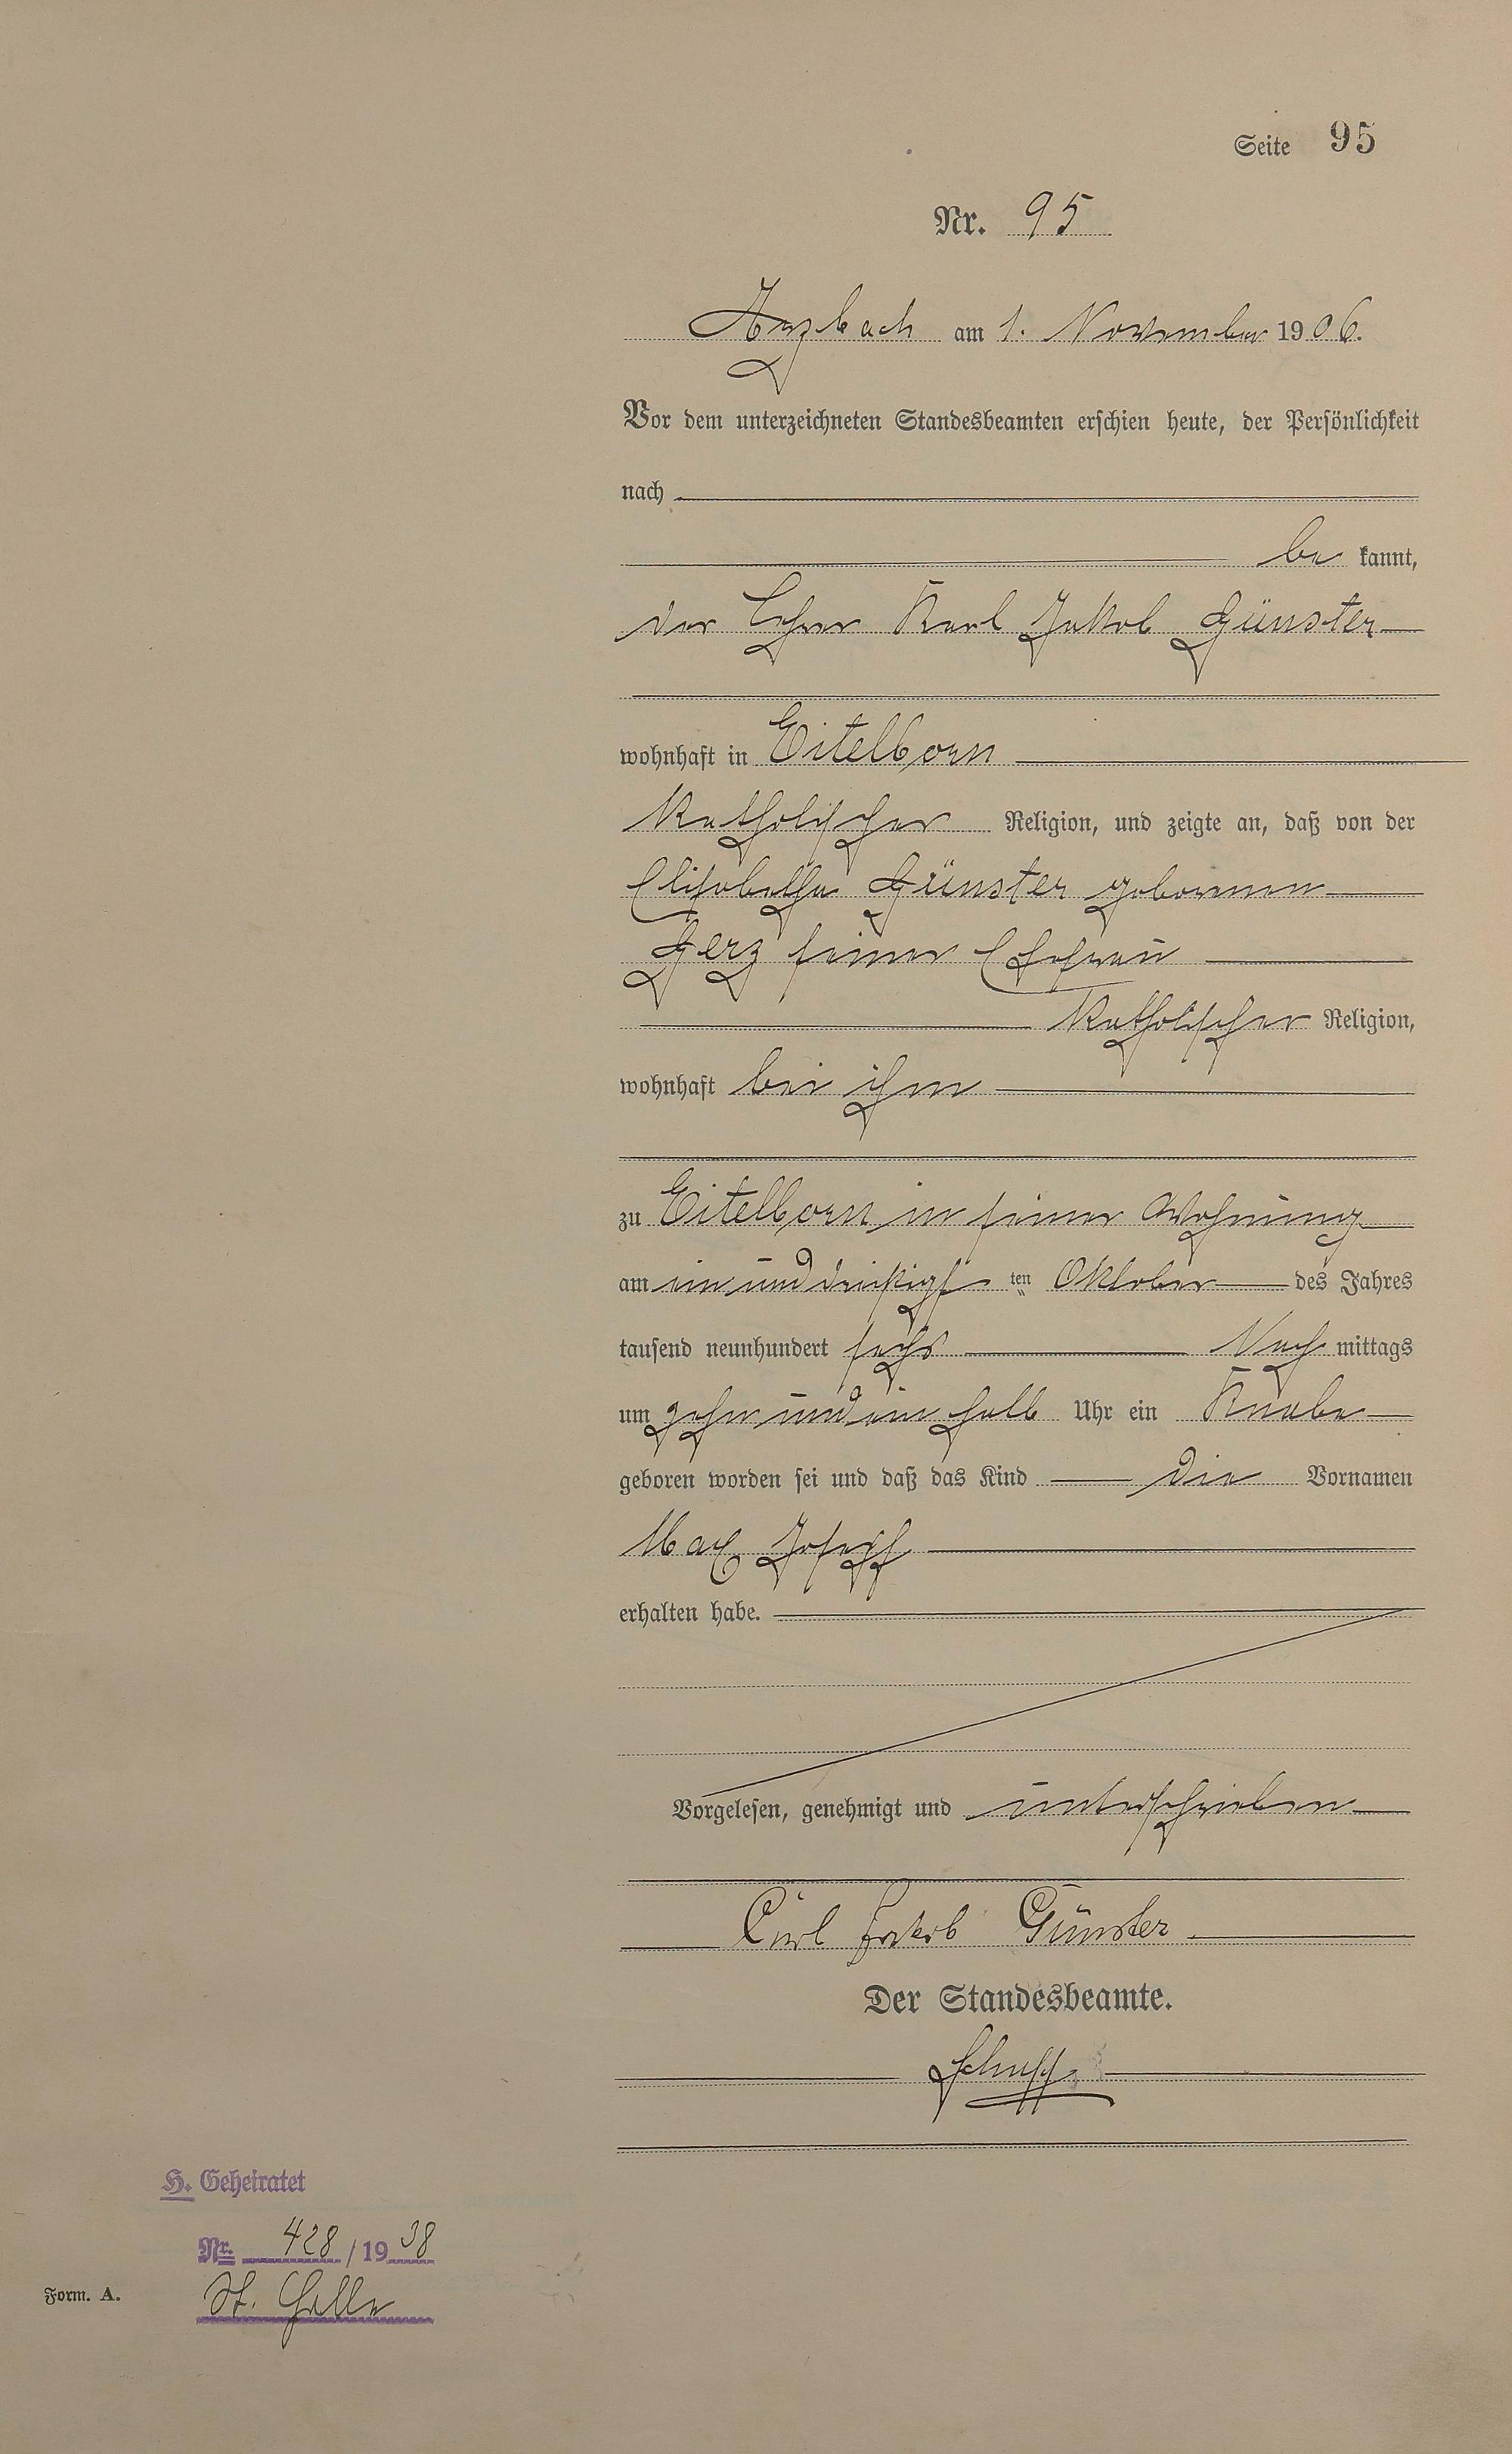 Seite 95
Nr. 95
Arzbach am 1. November 1906.
Vor dem unterzeichneten Standesbeamten erschien heute, der Persönlichkeit
nach
be kannt,
der Lehrer Karl Jakob Günster
wohnhaft in Eitelborn
katholischer Religion, und zeigte an, daß von der
Elisabetha Günster geborenen
Gerz seiner Ehefrau
katholischer Religion,
wohnhaft bei ihm
zu Eitelborn in seiner Wohnung
am ein und dreißigsten Oktober des Jahres
tausend neunhundert sechs Nach mittags
um zehn und ein halb Uhr ein Knabe
geboren worden sei und daß das Kind die Vornamen
Max Josef
erhalten habe.
Vorgelesen, genehmigt und unterschrieben
Carl Jakob Günster
Der Standesbeamte.
H. Geheiratet
Nr. 428/1938
St. Halle
Form. A.